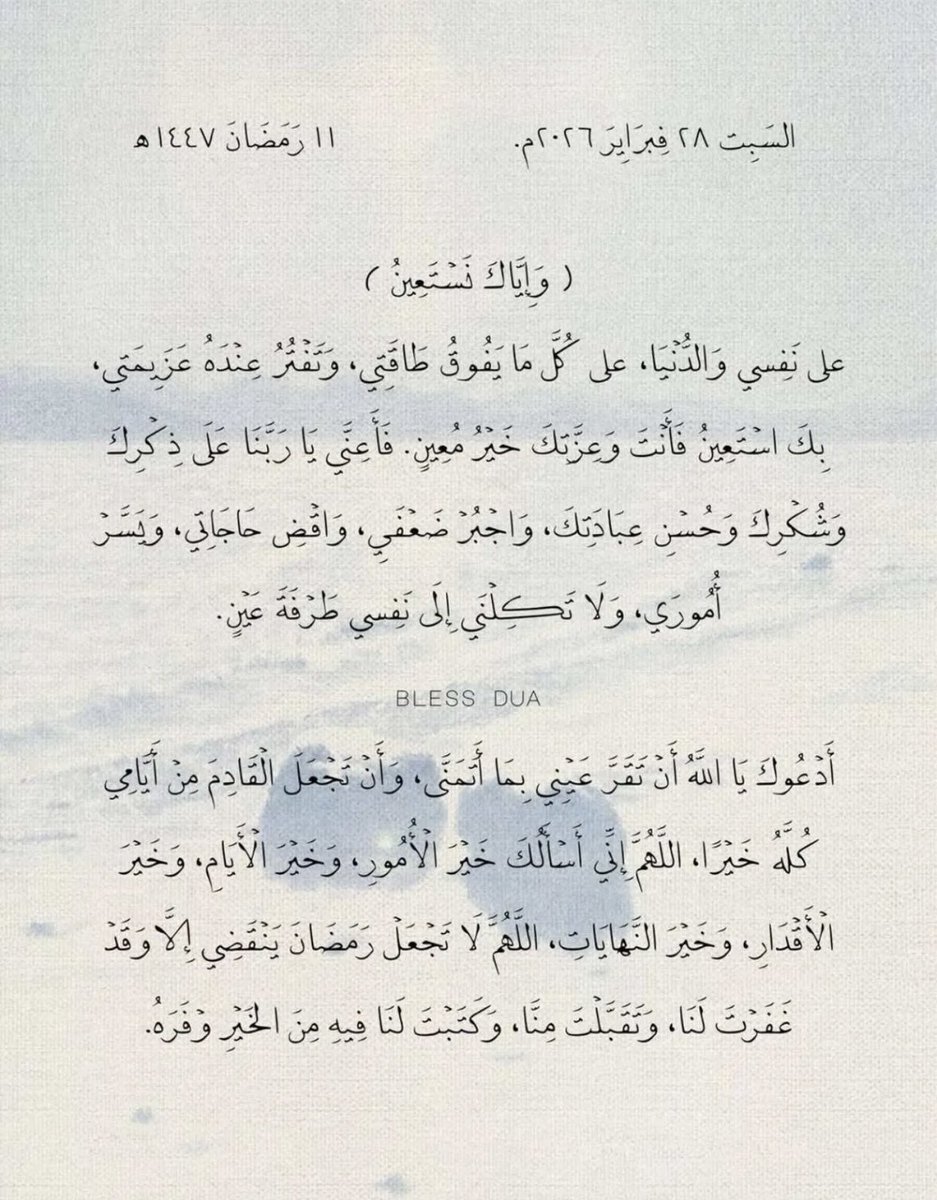 السَبِت ٢٨ فِبرَايِرَ ٢٠٢٦م. ١١ رَمَضَانَ ١٤٤٧ه
( وَإِيَّاكَ نَسْتَعِينُ )
على نَفِسي وَالدُّنْيَا، على كُلَّ مَا يَفُوقُ طَاقَتِي، وَتَفْتُرُ عِنْدَهُ عَزِيمَتي،
بِكَ اسْتَعِينُ فَأَنْتَ وَعِزَّتِكَ خَيْرُ مُعِينٍ. فَأَعِنَّي يَا رَبَّنَا عَلَى ذِكْرِكَ
وَشُكْرِكَ وَحُسْنِ عِبَادَتِكَ، وَاجْبُرْ ضَعْفَي، وَاقْضِ حَاجَاتِي، وَيَسَّرْ
أُمُورَي، وَلَا تَكِلْنَي إِلَى نَفِسي طَرْفَةَ عَيْنٍ.
BLESS DUA
أَدْعُوكَ يَا اللَّهُ أَنْ تَقَرَّ عَيْنِي بِمَا أَتَمَنَّى، وَأَنْ تَجْعَلَ الْقَادِمَ مِنْ أَيَّامِي
كُلَّهُ خَيْرًا، اللَّهُمَّ إِنِّي أَسْأَلُكَ خَيْرَ الْأُمُورِ، وَخَيْرَ الْأَيَامِ، وَخَيْرَ
الْأَقْدَارِ، وَخَيْرَ النَّهَايَاتِ، اللَّهُمَّ لَا تَجْعَلْ رَمَضَانَ يَنْقَضِي إِلَّا وَقَدْ
غَفَرْتَ لَنَا، وَتَقَبَّلْتَ مِنَّا، وَكَتَبْتَ لَنَا فِيهِ مِنَ الخَيْرِ وْفَرَهُ.